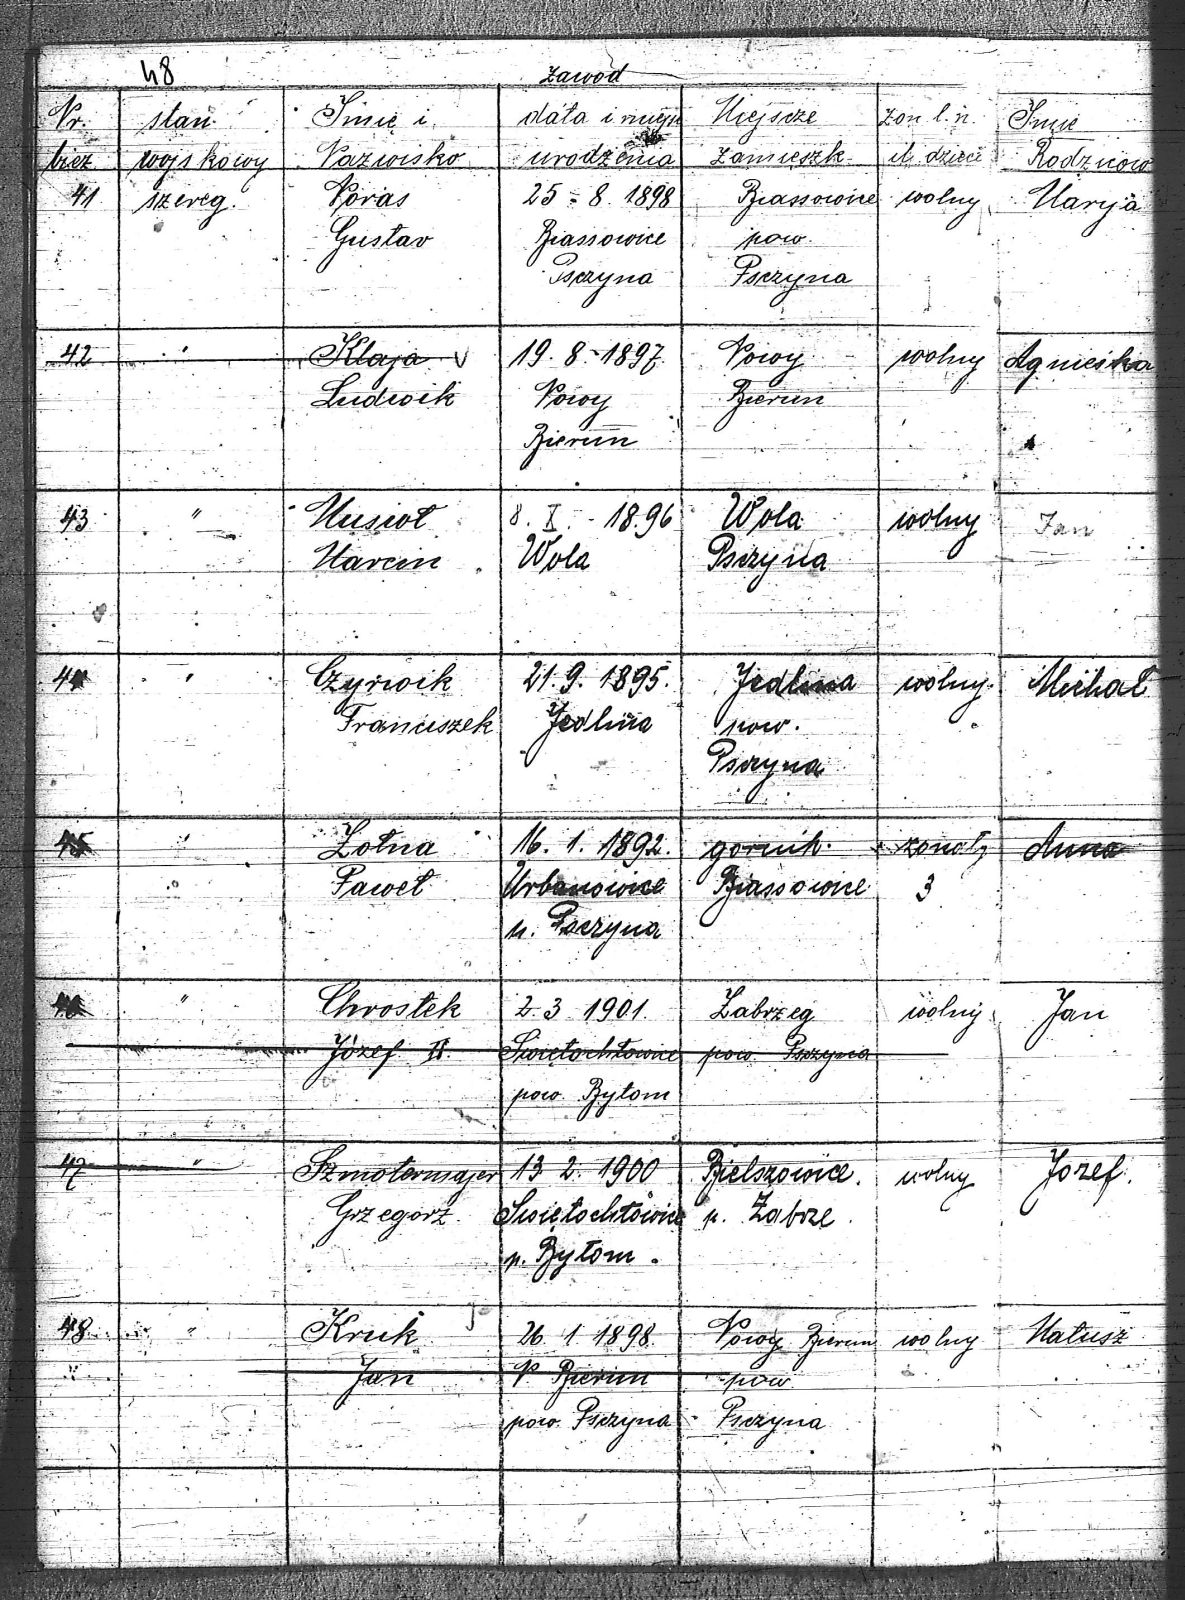 48
zawod
Nr. stan Imię i data i miejsc Miejscze żon l. n. Imię
bież wojskowy Nazwisko urodzenia zamieszk. il. dzieci Rodzicow
41 szereg. Noras 25-8. 1898 Biassowice wolny Maryja
Gustav Biassowice pow.
Psczyna Psczyna
42 " Klaja V 19. 8-1897 Nowy wolny Agnieska
Ludwik Nowy Bierun
Bierun
43 " Musioł 8. X. - 1896 Wola wolny Jan
Marcin Wola Psczyna
" Czyrwik 21. 9. 1895. Jedlina wolny. Michał
Franciszek Jedlina pow.
Psczyna
45 " Zołna 16. 1. 1892. gornik. żonaty Anna
Paweł Urbanowice Biassowice 3
p. Psczyna
" Chrostek 2. 3 1901. Zabrzeg wolny Jan
Józef II. Swiętochłowice pow. Psczyna
pow. Bytom
47 " Szmotermajer 13 2. 1900 Bielszowice. wolny Jozef.
Grzegorz. Swiętochłowice p. Zabrze.
p. Bytom.
48 " Kruk 26. 1 1898 Nowy Bierun wolny Matusz
Jan N Bierun pow
pow. Psczyna Psczyna